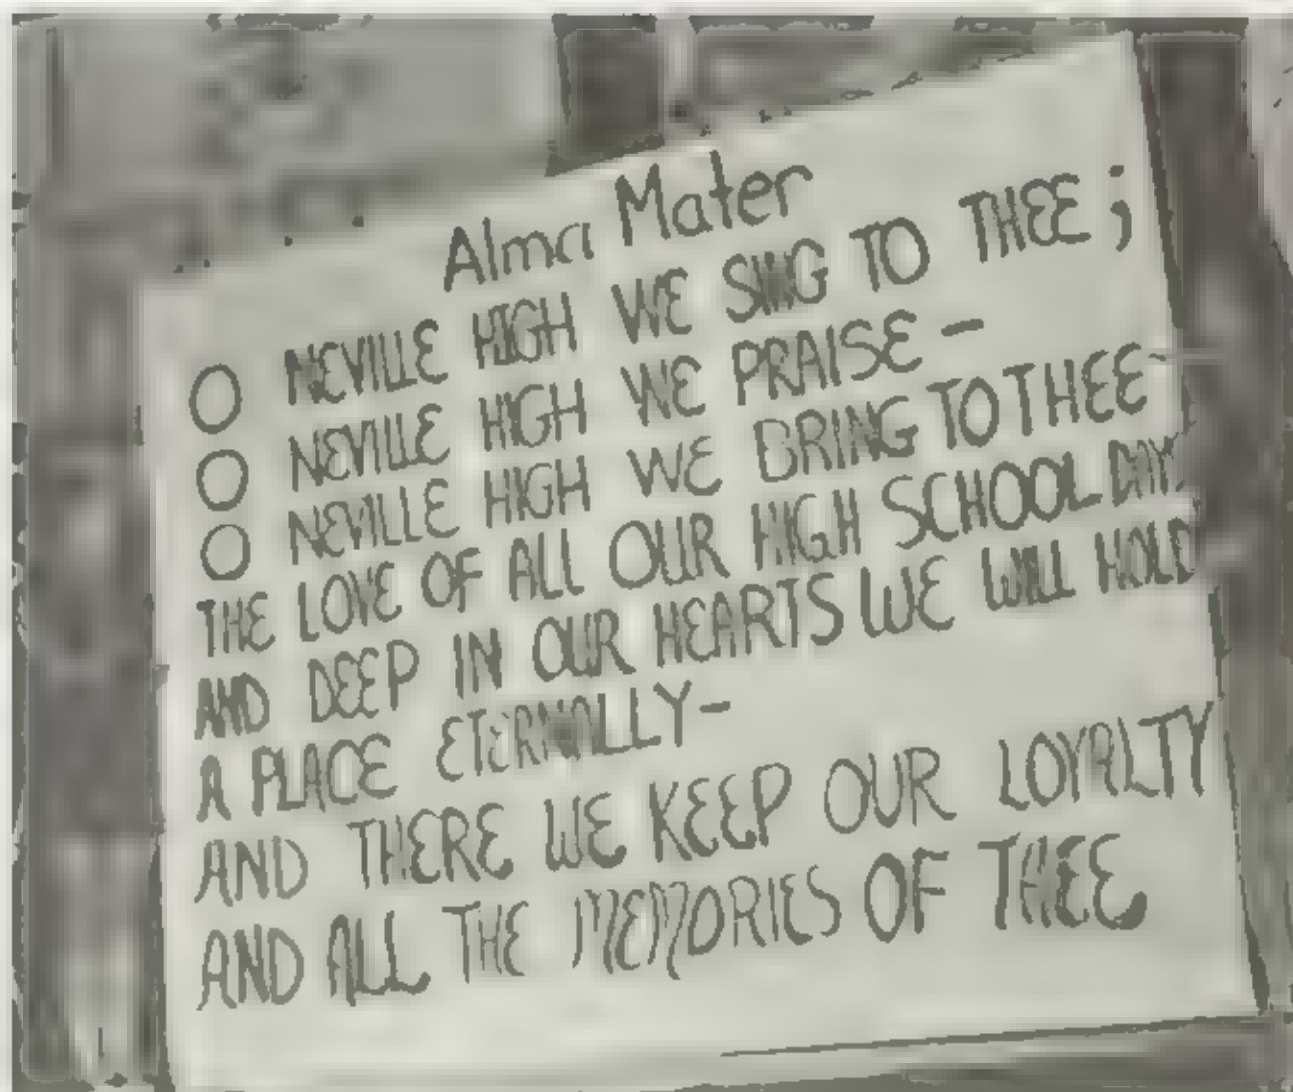 Alma Mater
O NEVILLE HIGH WE SING TO THEE;
O NEVILLE HIGH WE PRAISE -
O NEVILLE HIGH WE BRING TO THEE
THE LOVE OF ALL OUR HIGH SCHOOL DAYS
AND DEEP IN OUR HEARTS WE WILL HOLD
A PLACE ETERNALLY-
AND THERE WE KEEP OUR LOYALTY
AND ALL THE MEMORIES OF THEE